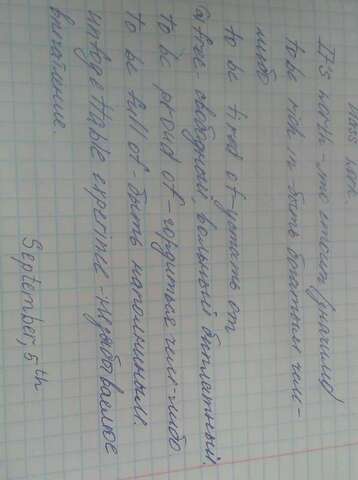 It's worth - это стоит (значит)
to be rich in - быть богатым чем-
либо
to be tired of - устать от
free - свободный, вольный, бесплатный.
to be proud of - гордиться чем-либо
to be full of - быть наполненным.
незабываемое
впечатление.
September, 5th